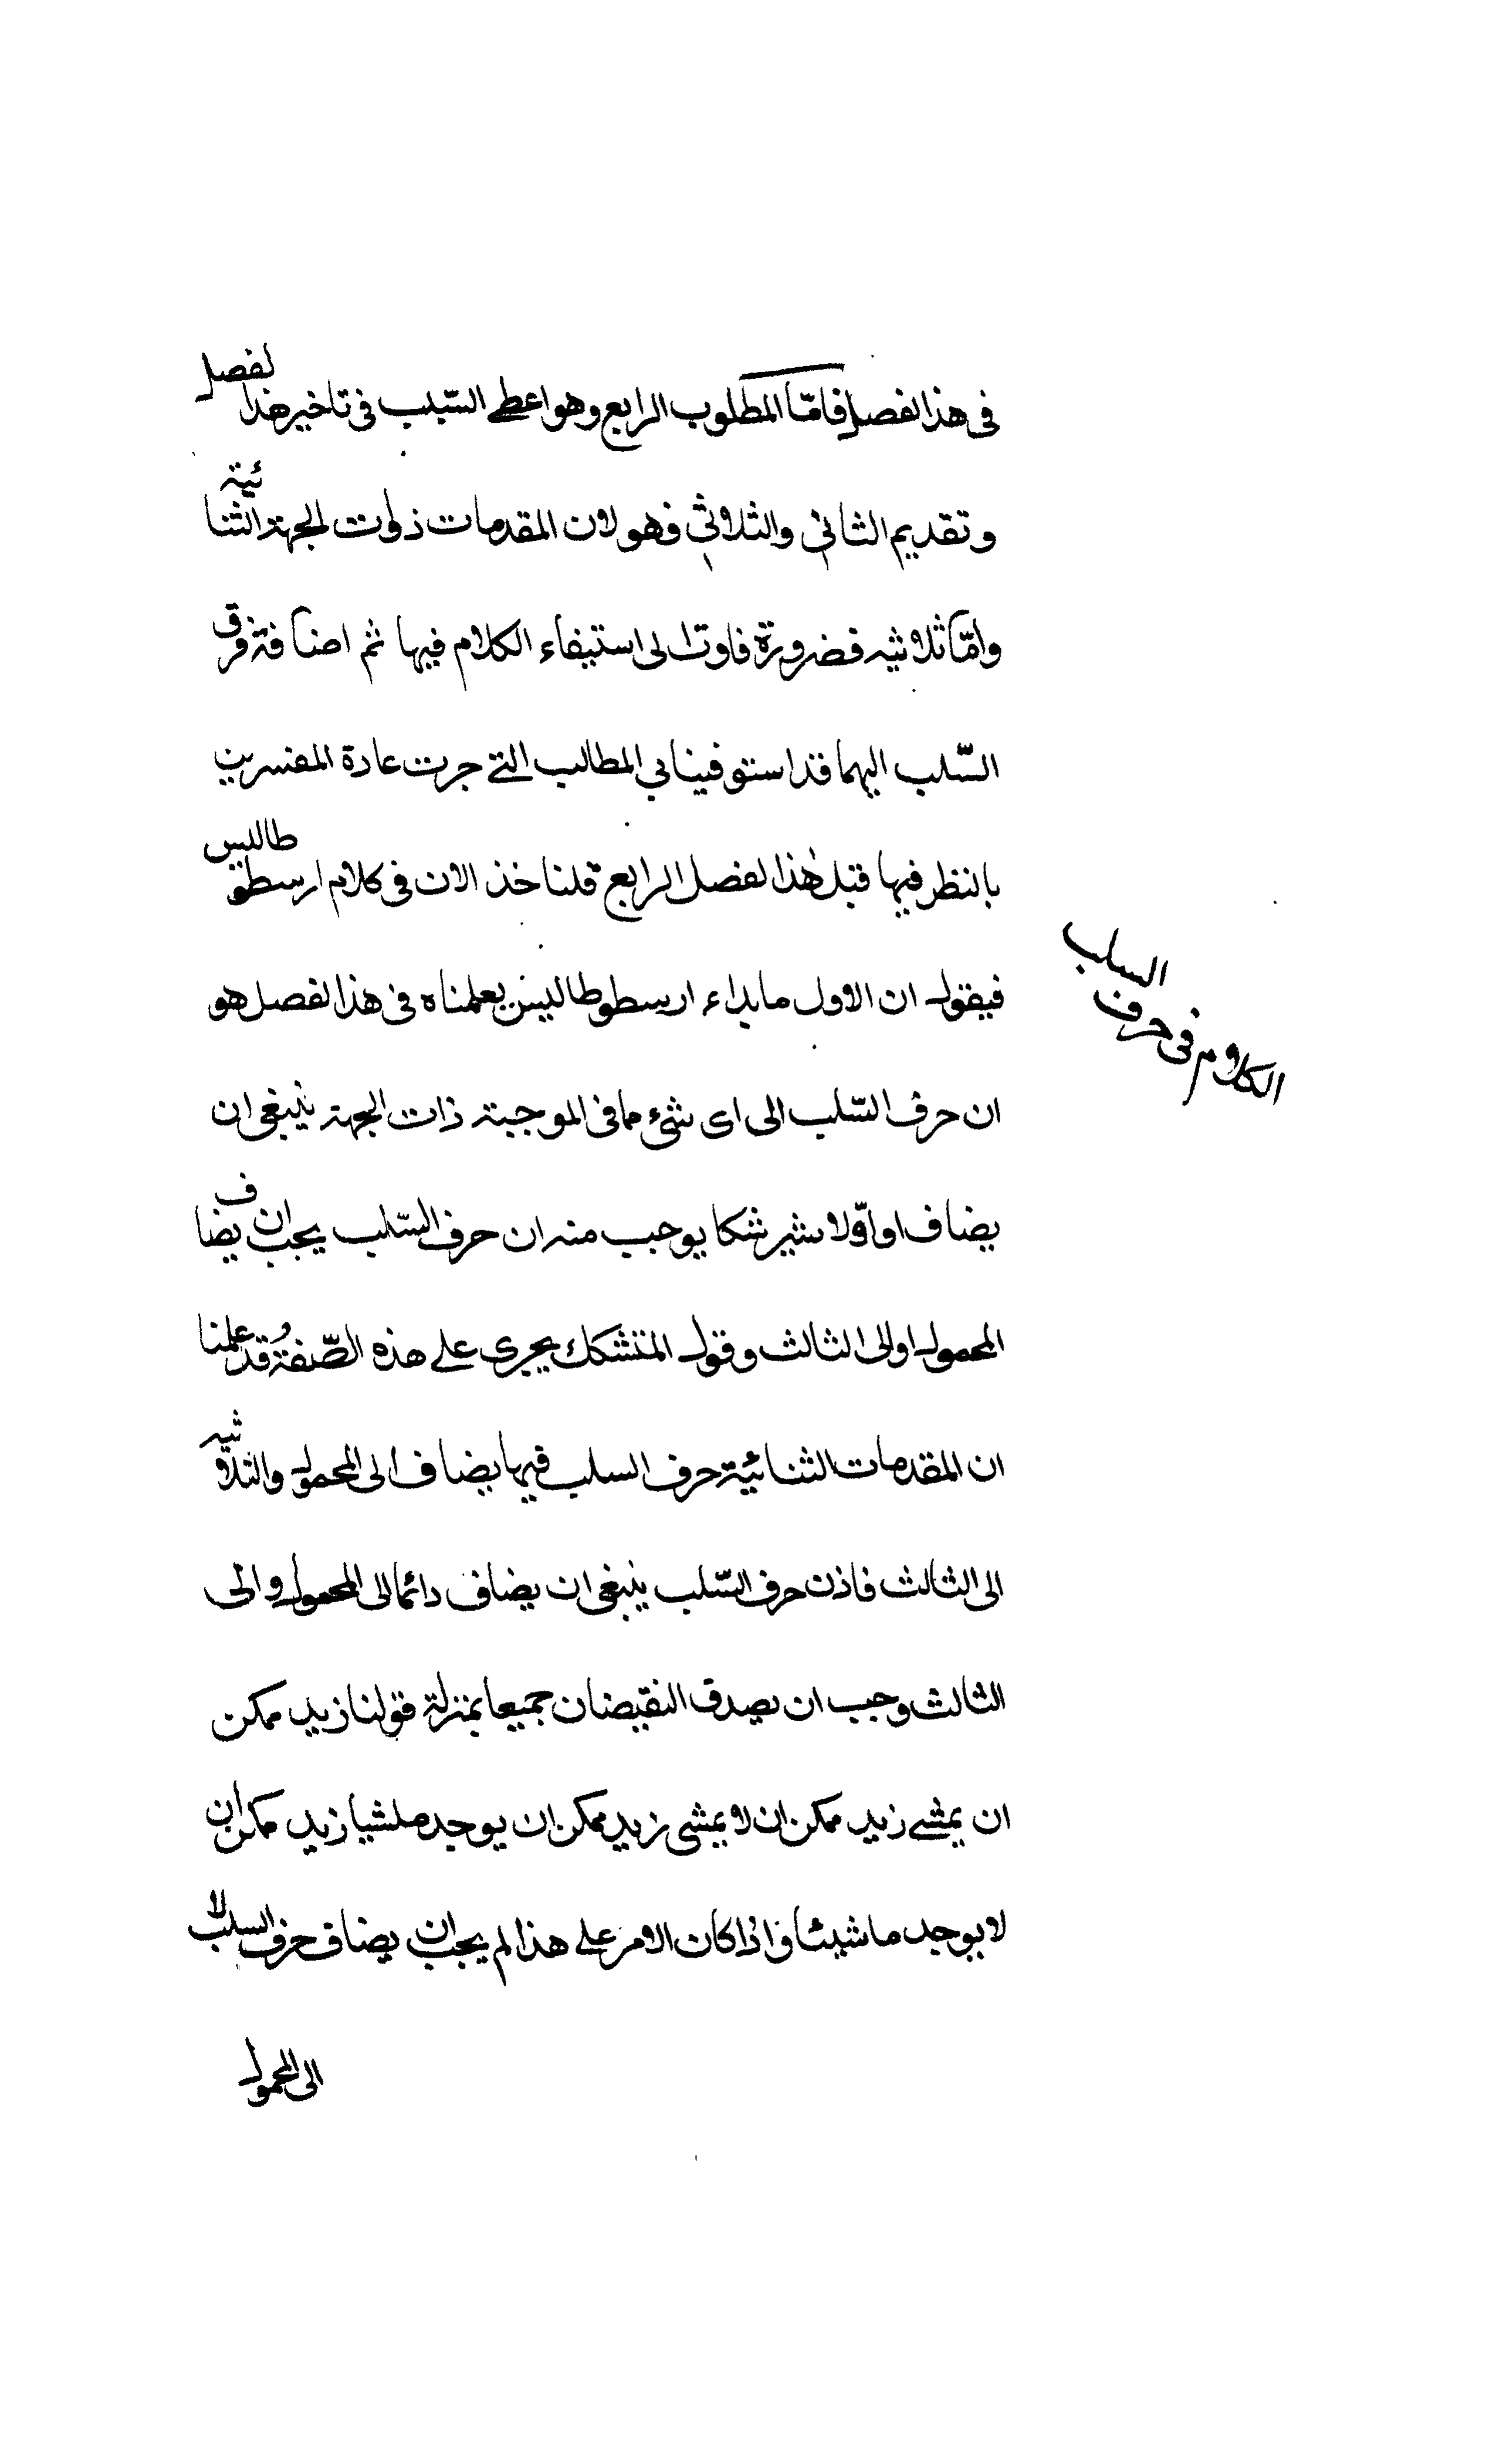 فى هذا لفصل فامّا المطلوب الرابع وهو اعطے السّبب فى تاخير هذا لفصل
وتقديم الثانى والثلاثى فهو لان المقدمات ذوات الجهة الثنائية
وامّا ثلاثيه فضرورة فاوتا لى استيفاء الكلام فيها ثم اضافة فرق
السّلب اليهما قد استوفينا بى المطالب التے جرت عادة المفسرين
بالنظر فيها قبل هذا لفصل الرابع قلنا خذ الان فى كلام ارسطوطاليس
فيقول ان الاول مابداء ارسطوطاليس يعلمناه فى هذا لفصل هو
الكلام فى حرف السلب
ان حرف السّلب الى اى شئ مما فى الموجبة ذات الجهة ينبغى ان
يضاف اوا ولا يشير شكا يوجب منه ان حرف السّلب يجب ان يضاف
المحمول او الى الثالث وقول المتشكك يجرى على هذه الصّفة قد علمنا
ان المقدمات الثنائية حرف السلب فيها يضاف الى المحمول والثلاثيه
الى الثالث فاذن حرف السّلب ينبغى ان يضاف دائما الى المحمول والى
الثالث وجب ان يصدق النقيضان جميعا بمنزلة قولنا زيد ممكن
ان يمشے زيد ممكن ان لا يمشى زيد ممكن ان يوجد ماشيا زيد ممكن ان
لا يوجد ماشيا واذا كان الامر على هذا لم يجب ان يضاف حرف السلب لا
الى المحمول